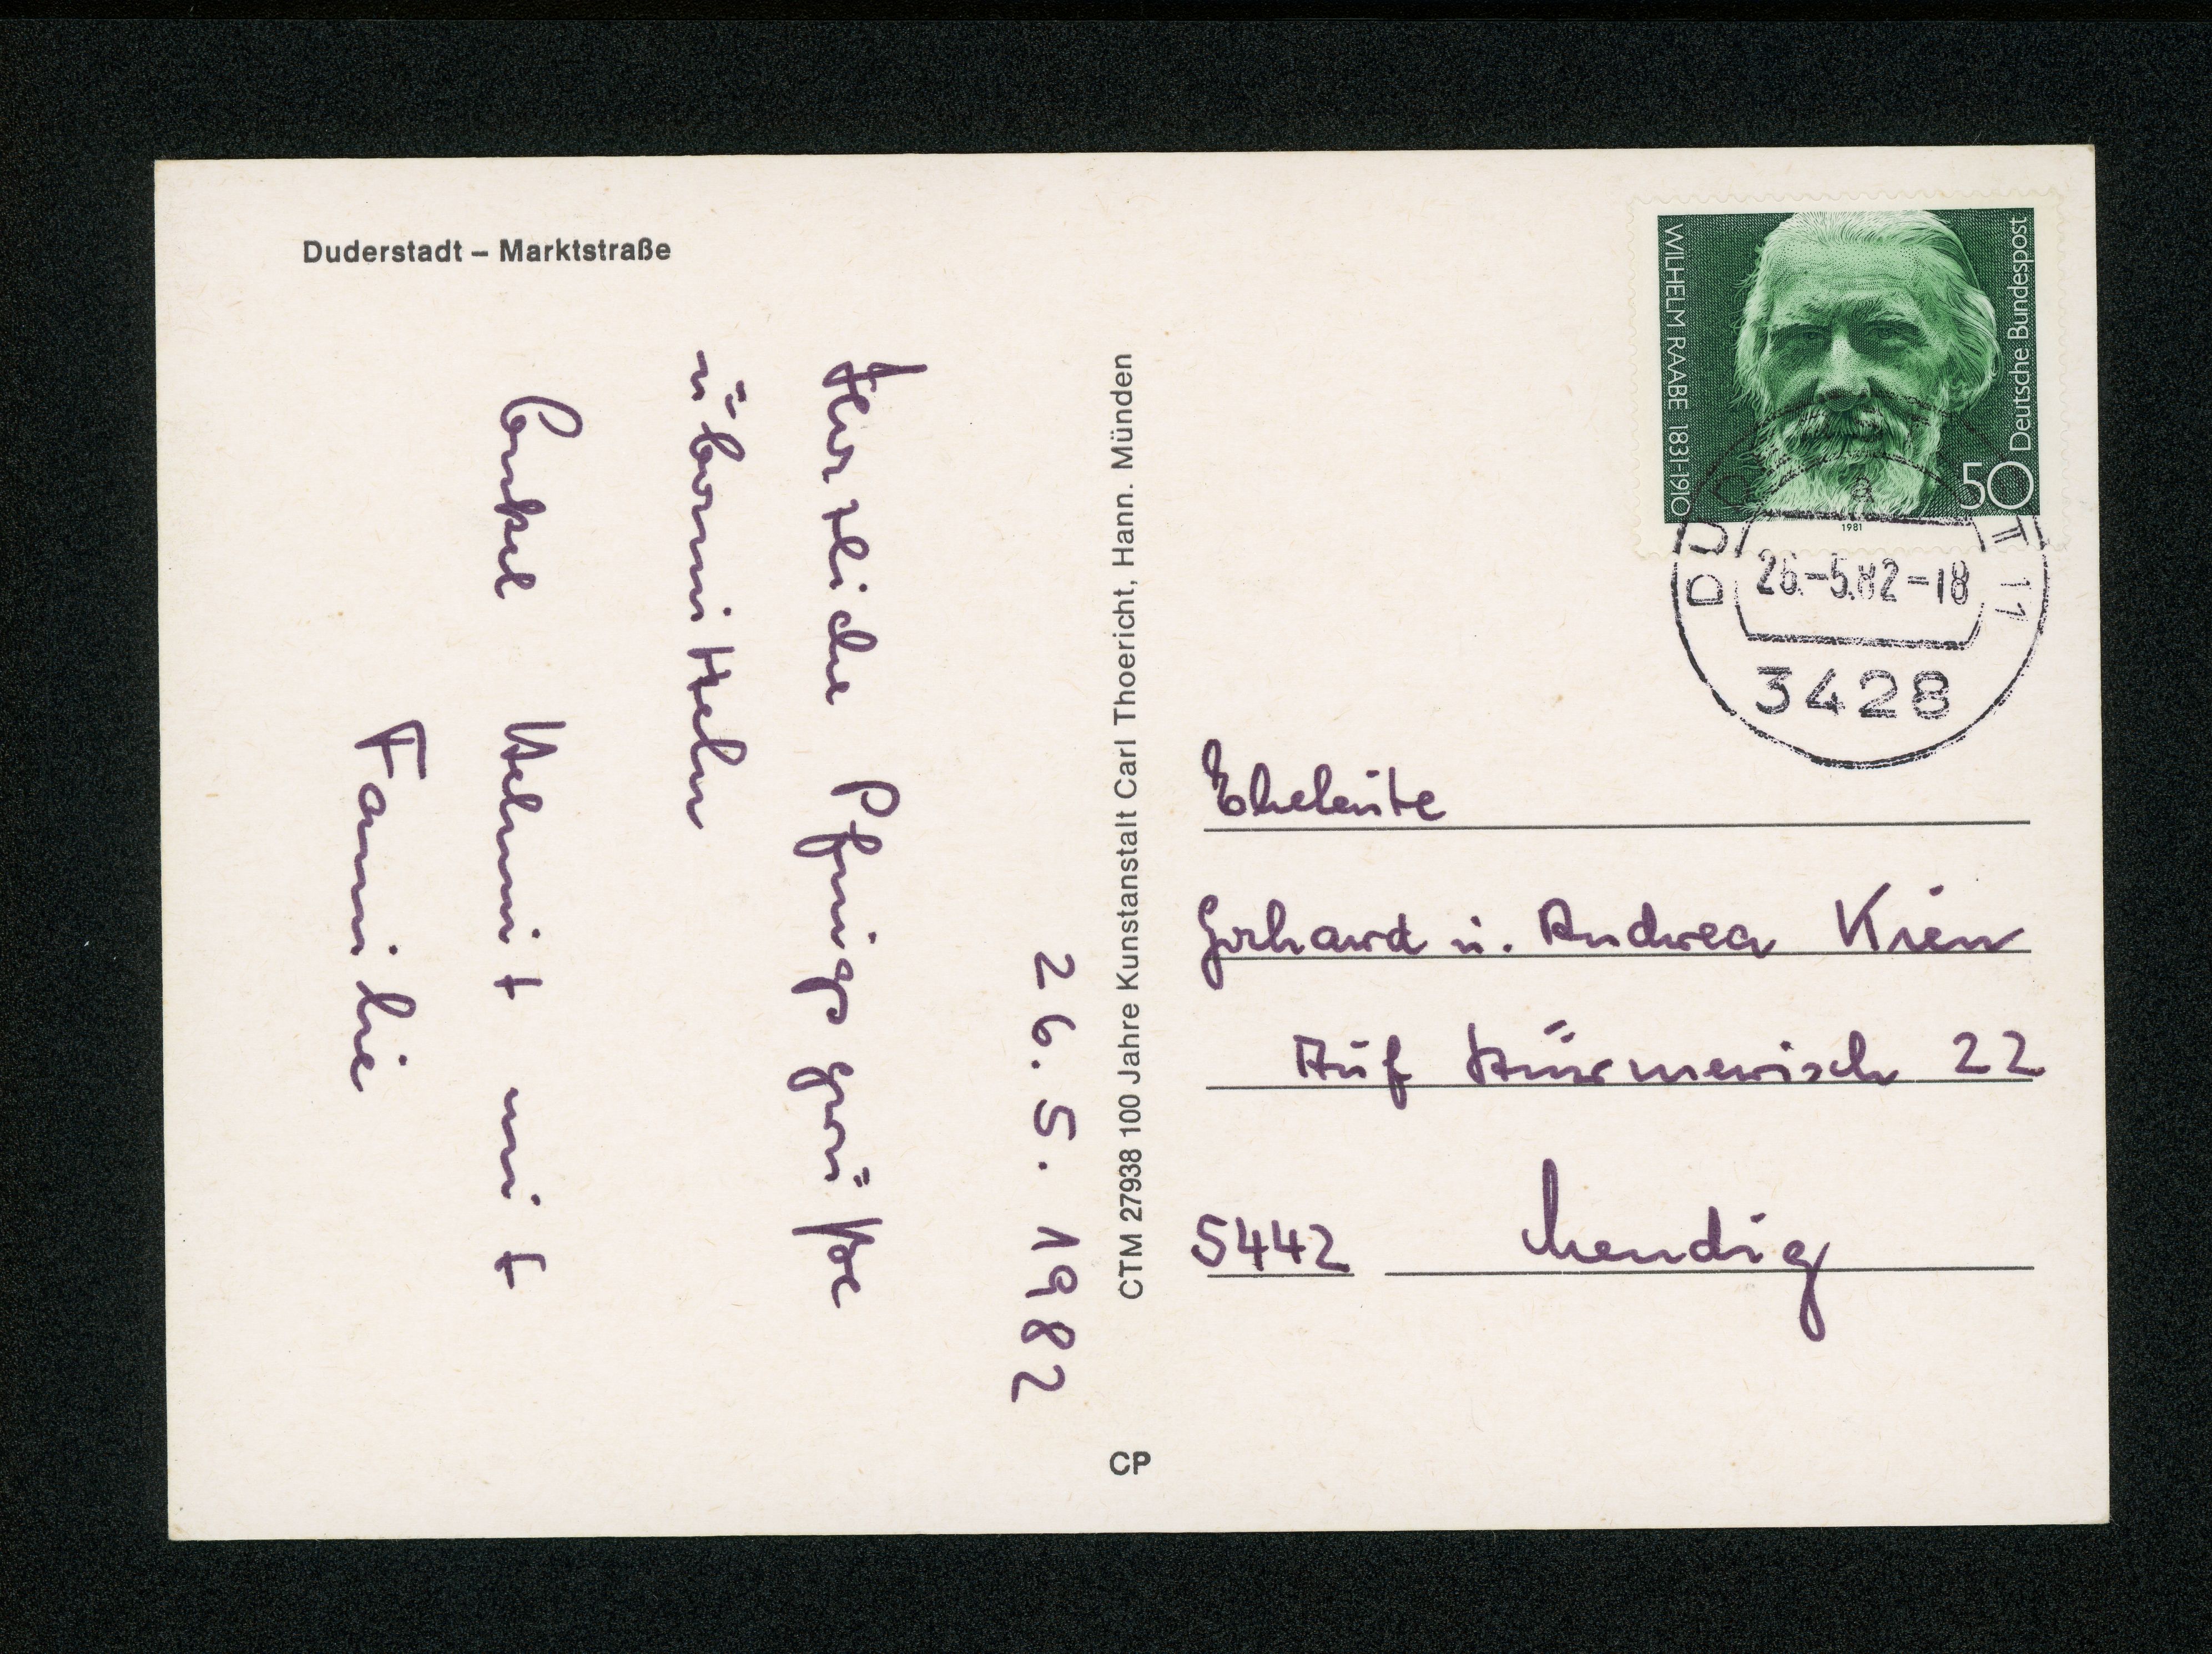 Duderstadt – Marktstraße
26.5.1982
Herzliche Pfingstgrüße
übermitteln
Onkel Helmut mit
Familie
CTM 27938 100 Jahre Kunstanstalt Carl Thoericht, Hann. Münden
CP
WILHELM RAABE 1831-1910
Deutsche Bundespost
50
1981
26.-5.82-18
3428
Eheleute
Gerhard u. Andrea
Auf 22
5442 Mendig